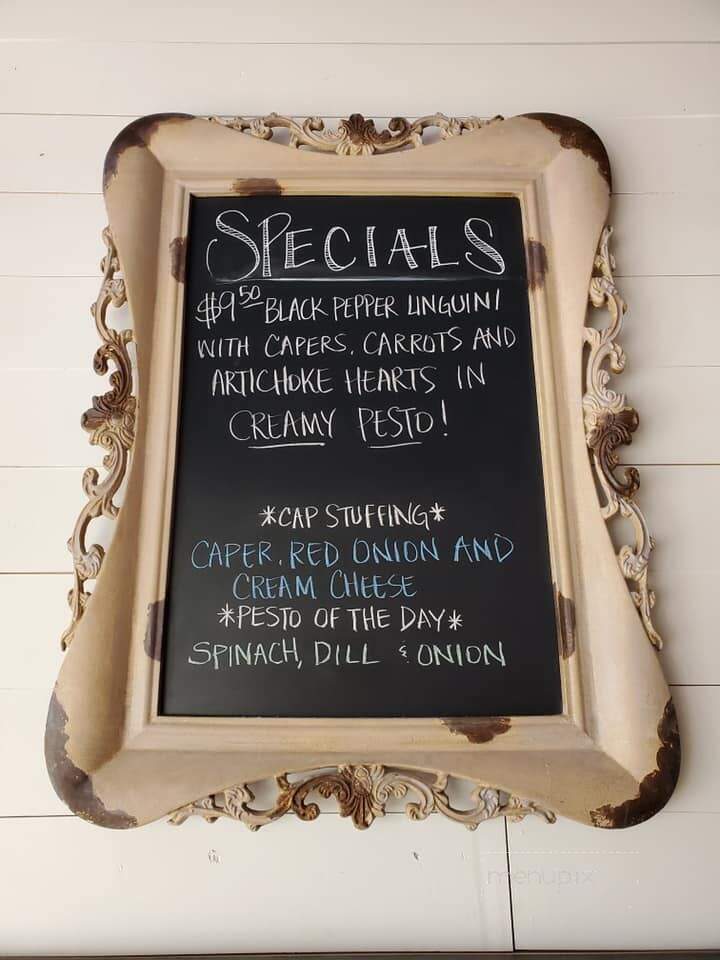 SPECIALS
$9.50 BLACK PEPPER LINGUINI
WITH CAPERS, CARROTS AND
ARTICHOKE HEARTS IN
CREAMY PESTO!
*CAP STUFFING*
CAPER, RED ONION AND
CREAM CHEESE
*PESTO OF THE DAY*
SPINACH, DILL & ONION
menupix